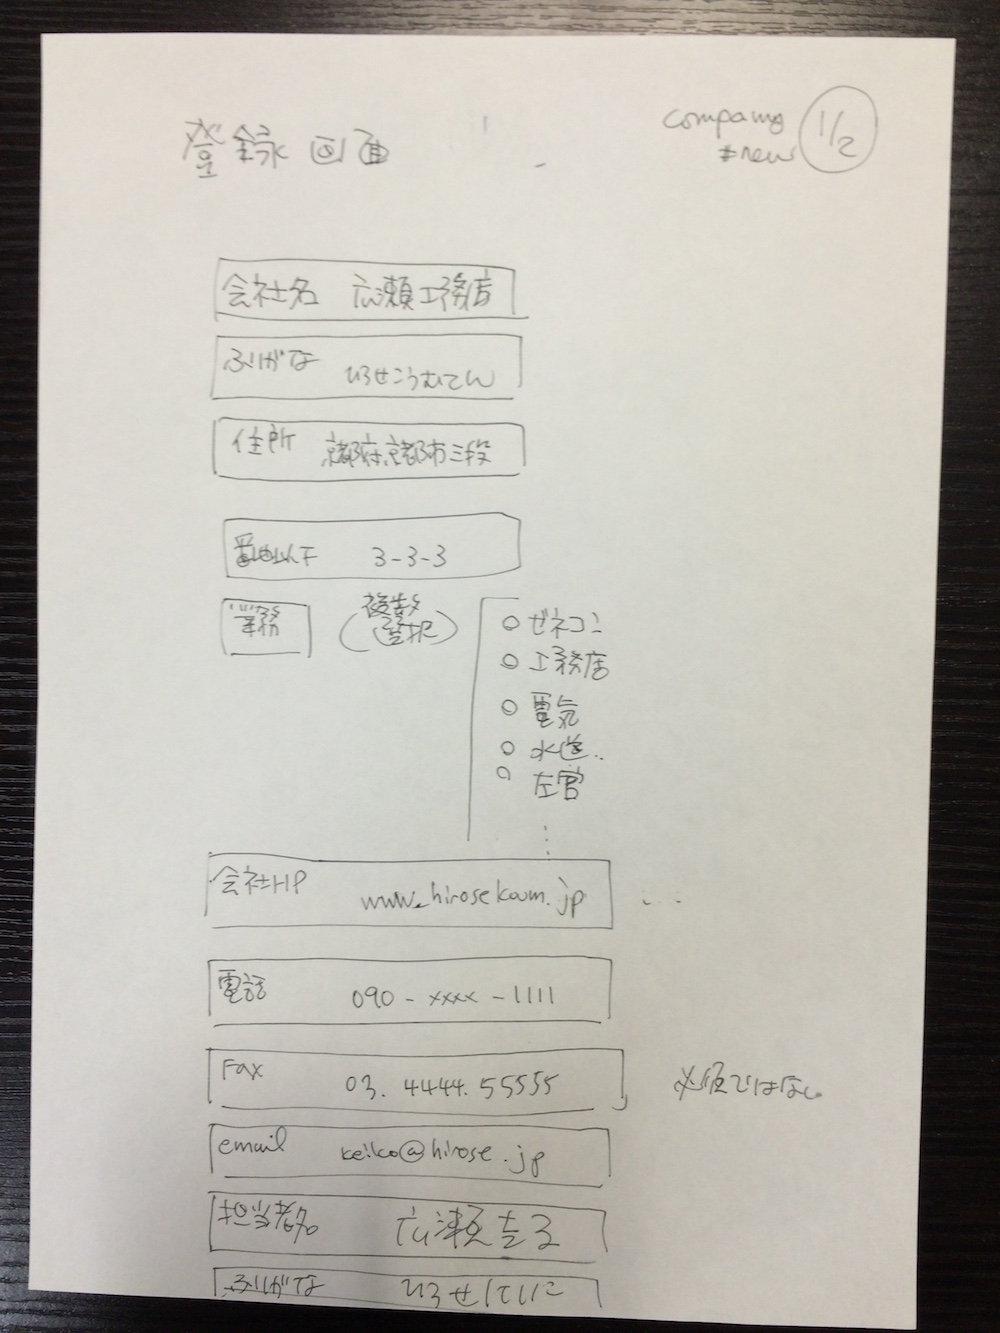 登録画面
company
#new
1/2
会社名 広瀬工務店
ふりがな ひろせこうむてん
住所 京都府京都市三段
番地以下 3-3-3
業務
(複数
選択)
○ ゼネコン
○ 工務店
○ 電気
○ 水道..
○ 左官
⋮
会社HP www.hirosekoum.jp
...
電話 090-xxxx-1111
Fax 03.4444.55555
必須ではない
email keiko@hirose.jp
担当者名 広瀬
ふりがな ひろせ